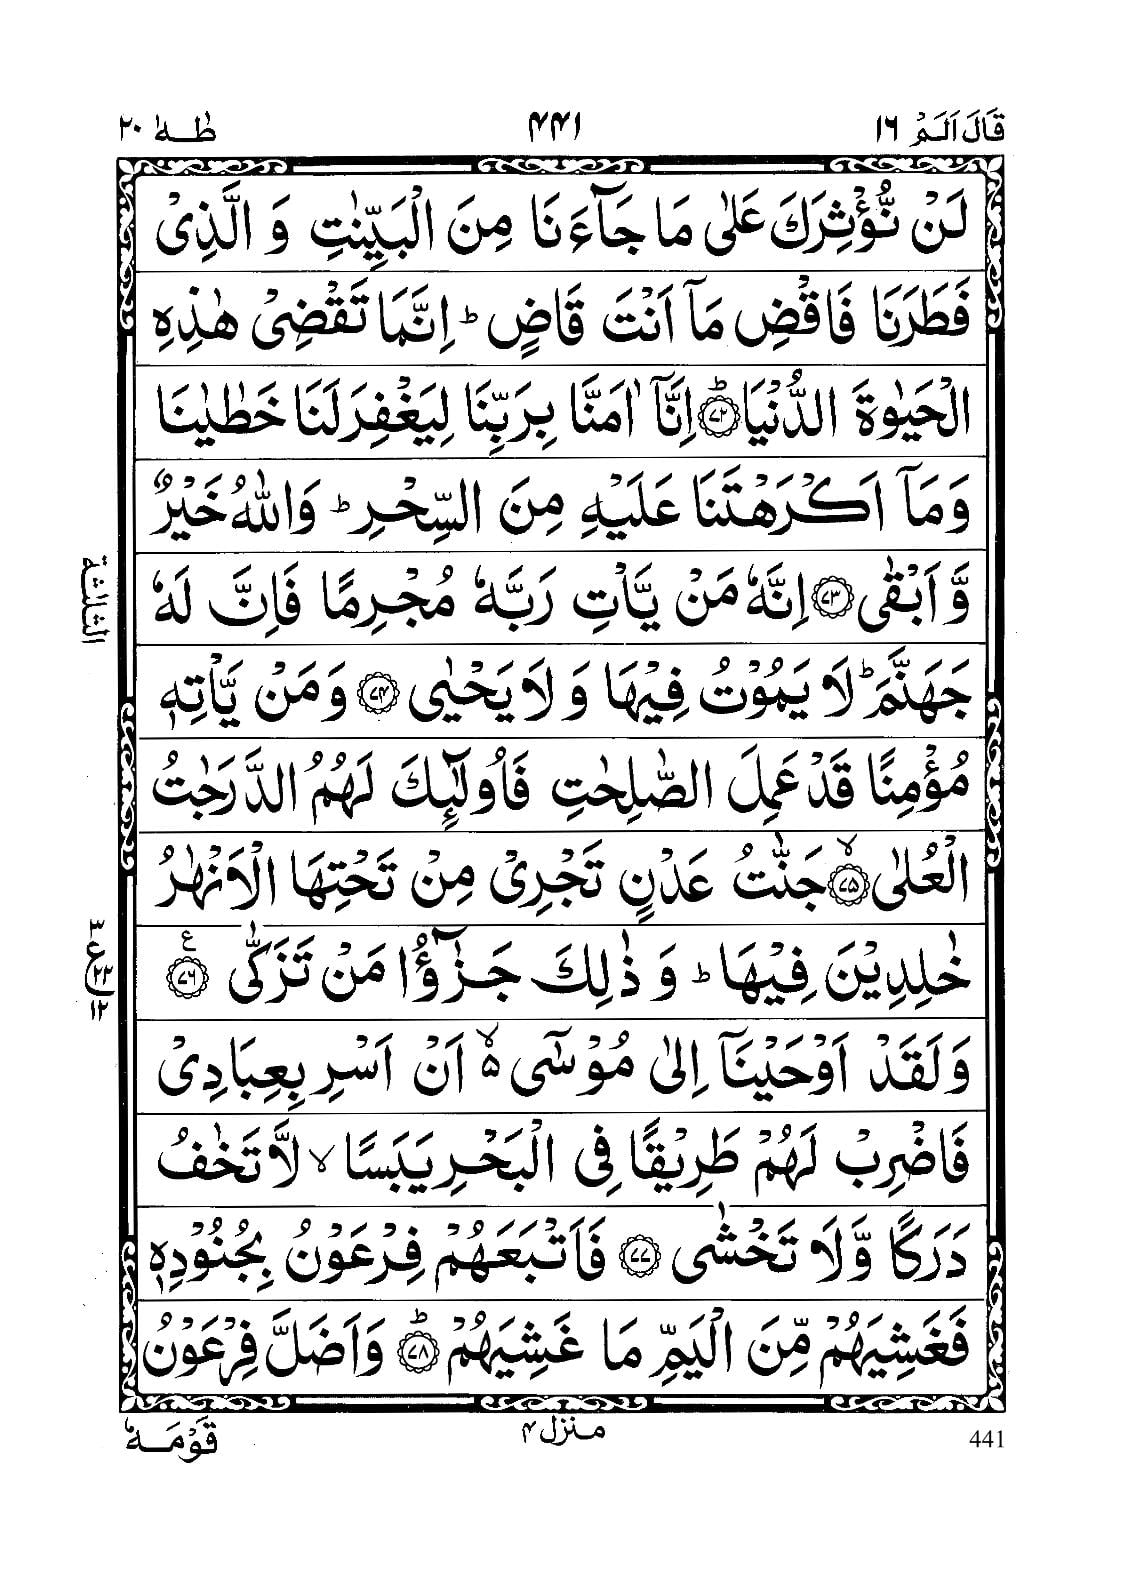 قَالَ اَلَمْ ١٦ ٤٤١ طٰهٰ ٢٠
لَنْ نُّؤْثِرَكَ عَلٰى مَا جَآءَنَا مِنَ الْبَيِّنٰتِ وَ الَّذِىْ
فَطَرَنَا فَاقْضِ مَآ اَنْتَ قَاضٍ ؕ اِنَّمَا تَقْضِىْ هٰذِهِ
الْحَيٰوةَ الدُّنْيَا ؕ ۝٧٢ اِنَّآ اٰمَنَّا بِرَبِّنَا لِيَغْفِرَ لَنَا خَطٰيٰنَا
وَمَآ اَكْرَهْتَنَا عَلَيْهِ مِنَ السِّحْرِ ؕ وَاللّٰهُ خَيْرٌ
وَّ اَبْقٰى ۝٧٣ اِنَّهٗ مَنْ يَّاْتِ رَبَّهٗ مُجْرِمًا فَاِنَّ لَهٗ
الثالثة
جَهَنَّمَ ؕ لَا يَمُوْتُ فِيْهَا وَ لَا يَحْيٰى ۝٧٤ وَمَنْ يَّاْتِهٖ
مُؤْمِنًا قَدْ عَمِلَ الصّٰلِحٰتِ فَاُولٰٓئِكَ لَهُمُ الدَّرَجٰتُ
الْعُلٰى ۙ ۝٧٥ جَنّٰتُ عَدْنٍ تَجْرِىْ مِنْ تَحْتِهَا الْاَنْهٰرُ
خٰلِدِيْنَ فِيْهَا ؕ وَ ذٰلِكَ جَزٰٓؤُا مَنْ تَزَكّٰى ۝٧٦ ع
٣ ع ٢٢ ١٢
وَلَقَدْ اَوْحَيْنَآ اِلٰى مُوْسٰٓى ۙ۵ اَنْ اَسْرِ بِعِبَادِىْ
فَاضْرِبْ لَهُمْ طَرِيْقًا فِى الْبَحْرِ يَبَسًا ۙ لَّا تَخٰفُ
دَرَكًا وَّلَا تَخْشٰى ۝٧٧ فَاَتْبَعَهُمْ فِرْعَوْنُ بِجُنُوْدِهٖ
فَغَشِيَهُمْ مِّنَ الْيَمِّ مَا غَشِيَهُمْ ؕ ۝٧٨ وَاَضَلَّ فِرْعَوْنُ
441 منزل ٤ قَوْمَهٗ